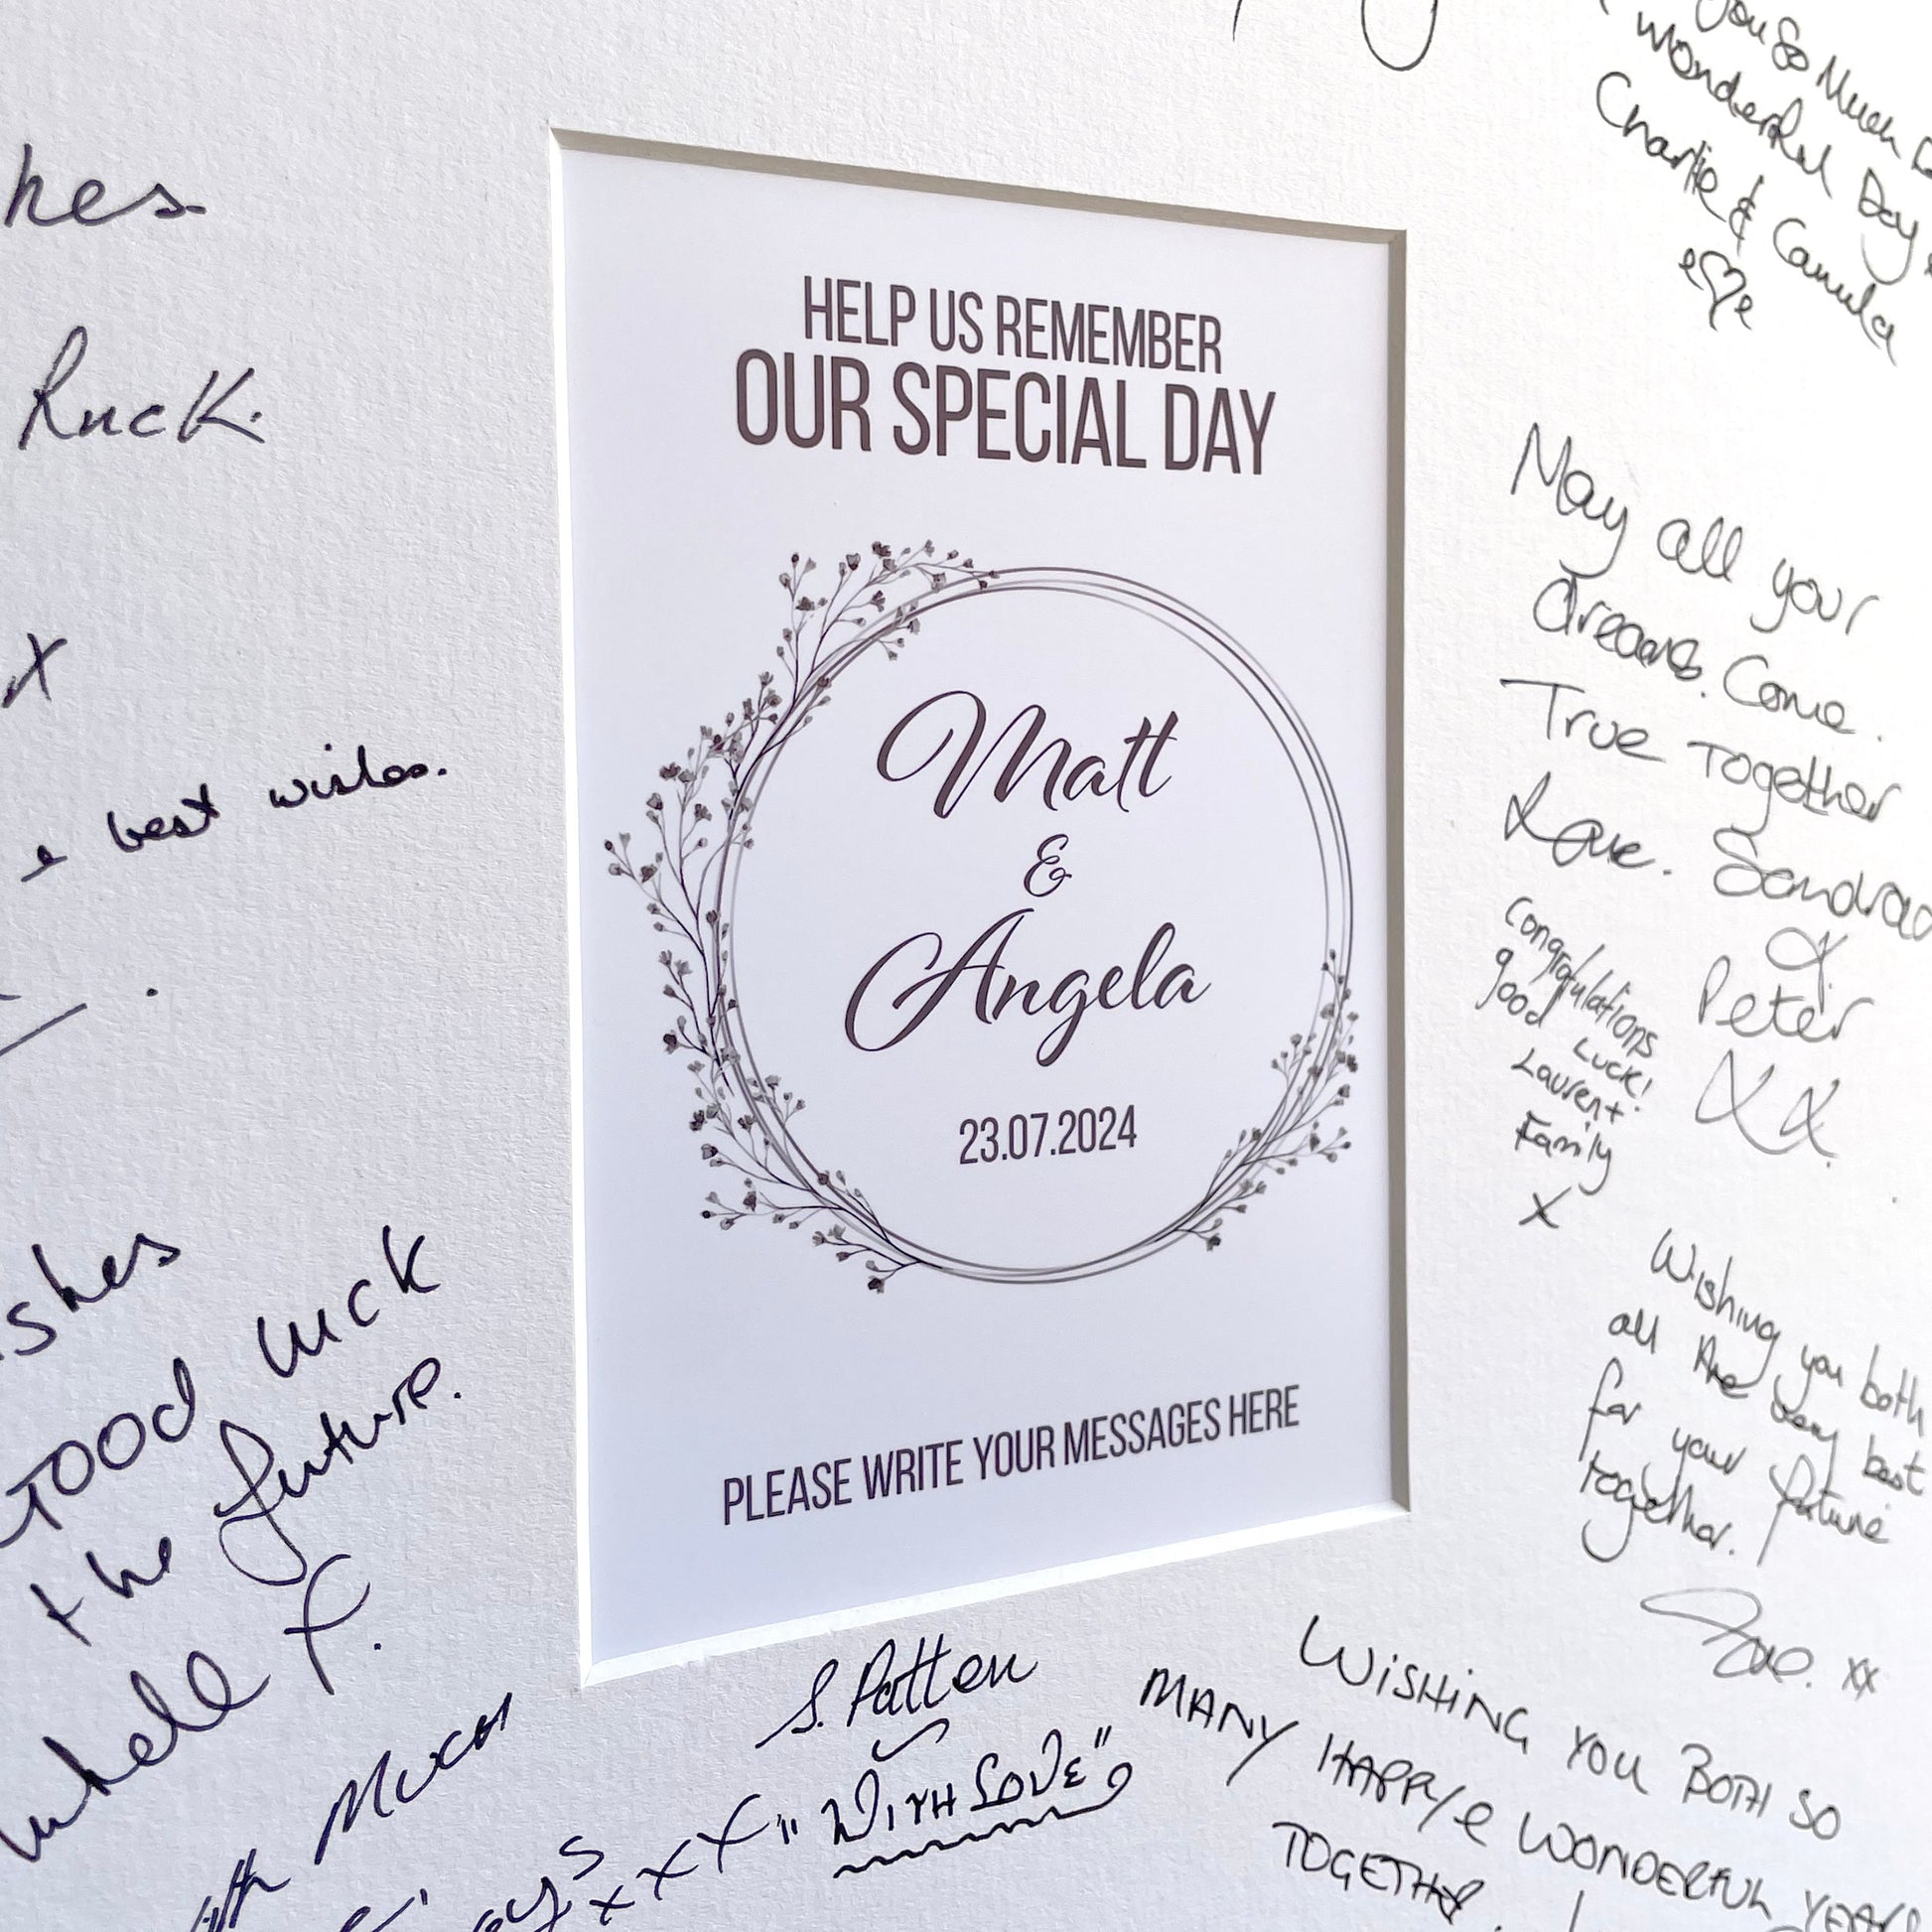 HELP US REMEMBER
OUR SPECIAL DAY
Matt
&
Angela
23.07.2024
PLEASE WRITE YOUR MESSAGES HERE
hes
Luck.
x
best wishes.
shes
Good luck
the future.
x.
Much
S. Patten
xxx "WITH LOVE"
you So Much
wonderful Day
Charlie & Camula
May all your
dreams. Come.
True Together
Love. Sandra
&
Peter
XX.
Congratulations
good Luck!
Lauren +
Family
X
Wishing you both
all the very best
for your future
together.
Zoe. xx
WISHING YOU BOTH SO
MANY HAPPY & WONDERFUL
TOGETHER.